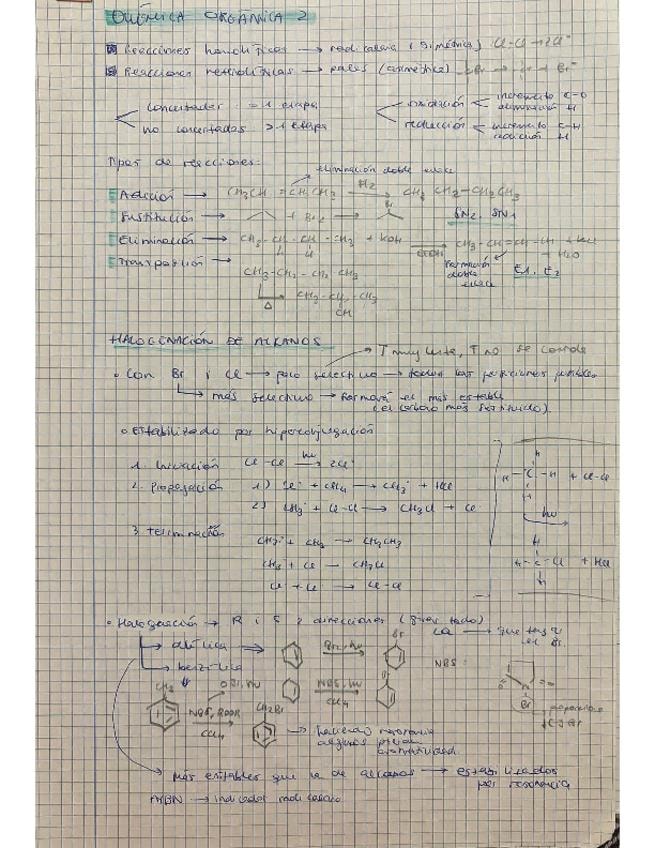 QUÍMICA ORGÁNICA 2
Reacciones homolíticas → radicalaria (simétrica) Cl-Cl → 2Cl·
Reacciones heterolíticas → pares (asimétrica)
concertadas = 1 etapa
no concertadas >1 etapa
oxidación
incremento C-O
H
reducción
incremento C-H
reducción H
Tipos de reacciones:
eliminación doble enlace
Adición → CH3CH=CHCH3 H2 → CH3CH2-CH2CH3
Sustitución → + Br2 → Br SN2, SN1
Eliminación → CH3-CH-CH-CH3 + KOH EtOH → CH3-CH=CH-CH + KCl + H2O
Transposición →
formación doble enlace
E1, E2
CH3-CH2-CH2-CH3
Δ CH3-CH-CH3
CH
HALOGENACIÓN DE ALKANOS
T muy lenta, T no se
Con Br i Cl → poco selectivo → todas las posiciones posibles
más selectivo → formará el más estable
(el carbono más sustituido)
Estabilizado por hiperconjugación
1. Iniciación Cl-Cl hν → 2Cl·
2. Propagación 1) Cl· + CH4 → CH3· + HCl
2) CH3· + Cl-Cl → CH3Cl + Cl·
3. Terminación
CH3· + CH3 → CH3CH3
CH3 + Cl → CH3Cl
Cl + Cl → Cl-Cl
H
H-C-H + Cl-Cl
H
hν
H
H-C-Cl + HCl
H
Halogenación → R i S 2 direcciones
alílica → Br2, hν Br
bencílica NBS, hν CCl4
NBS:
Br
CH3
NBS, ROOR
CCl4
CH2Br
aromaticidad
más estables que la de alcanos → estabilizados
por resonancia
AIBN → indicador radicalario